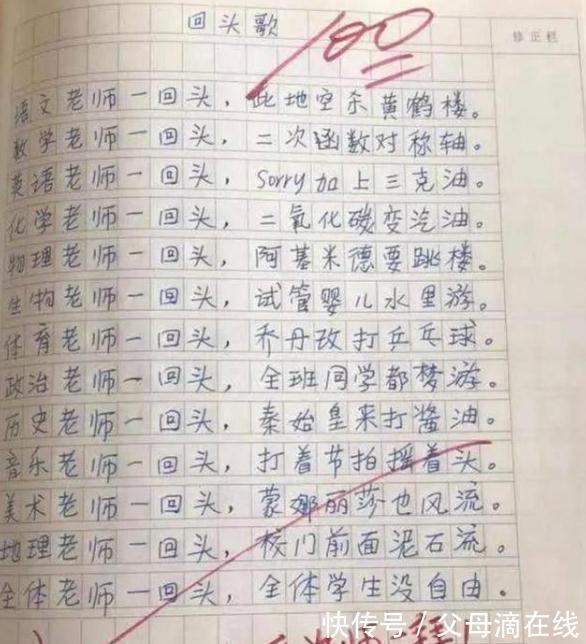 回头歌
100
修正栏
语文老师一回头，此地空余黄鹤楼。
数学老师一回头，二次函数对称轴。
英语老师一回头，Sorry加上三克油。
化学老师一回头，二氧化碳变汽油。
物理老师一回头，阿基米德要跳楼。
生物老师一回头，试管婴儿水里游。
体育老师一回头，乔丹改打乒乓球。
政治老师一回头，全班同学都梦游。
历史老师一回头，秦始皇来打酱油。
音乐老师一回头，打着节拍摇着头。
美术老师一回头，蒙娜丽莎也风流。
地理老师一回头，校门前面泥石流。
全体老师一回头，全体学生没自由。
快传号/父母滴在线